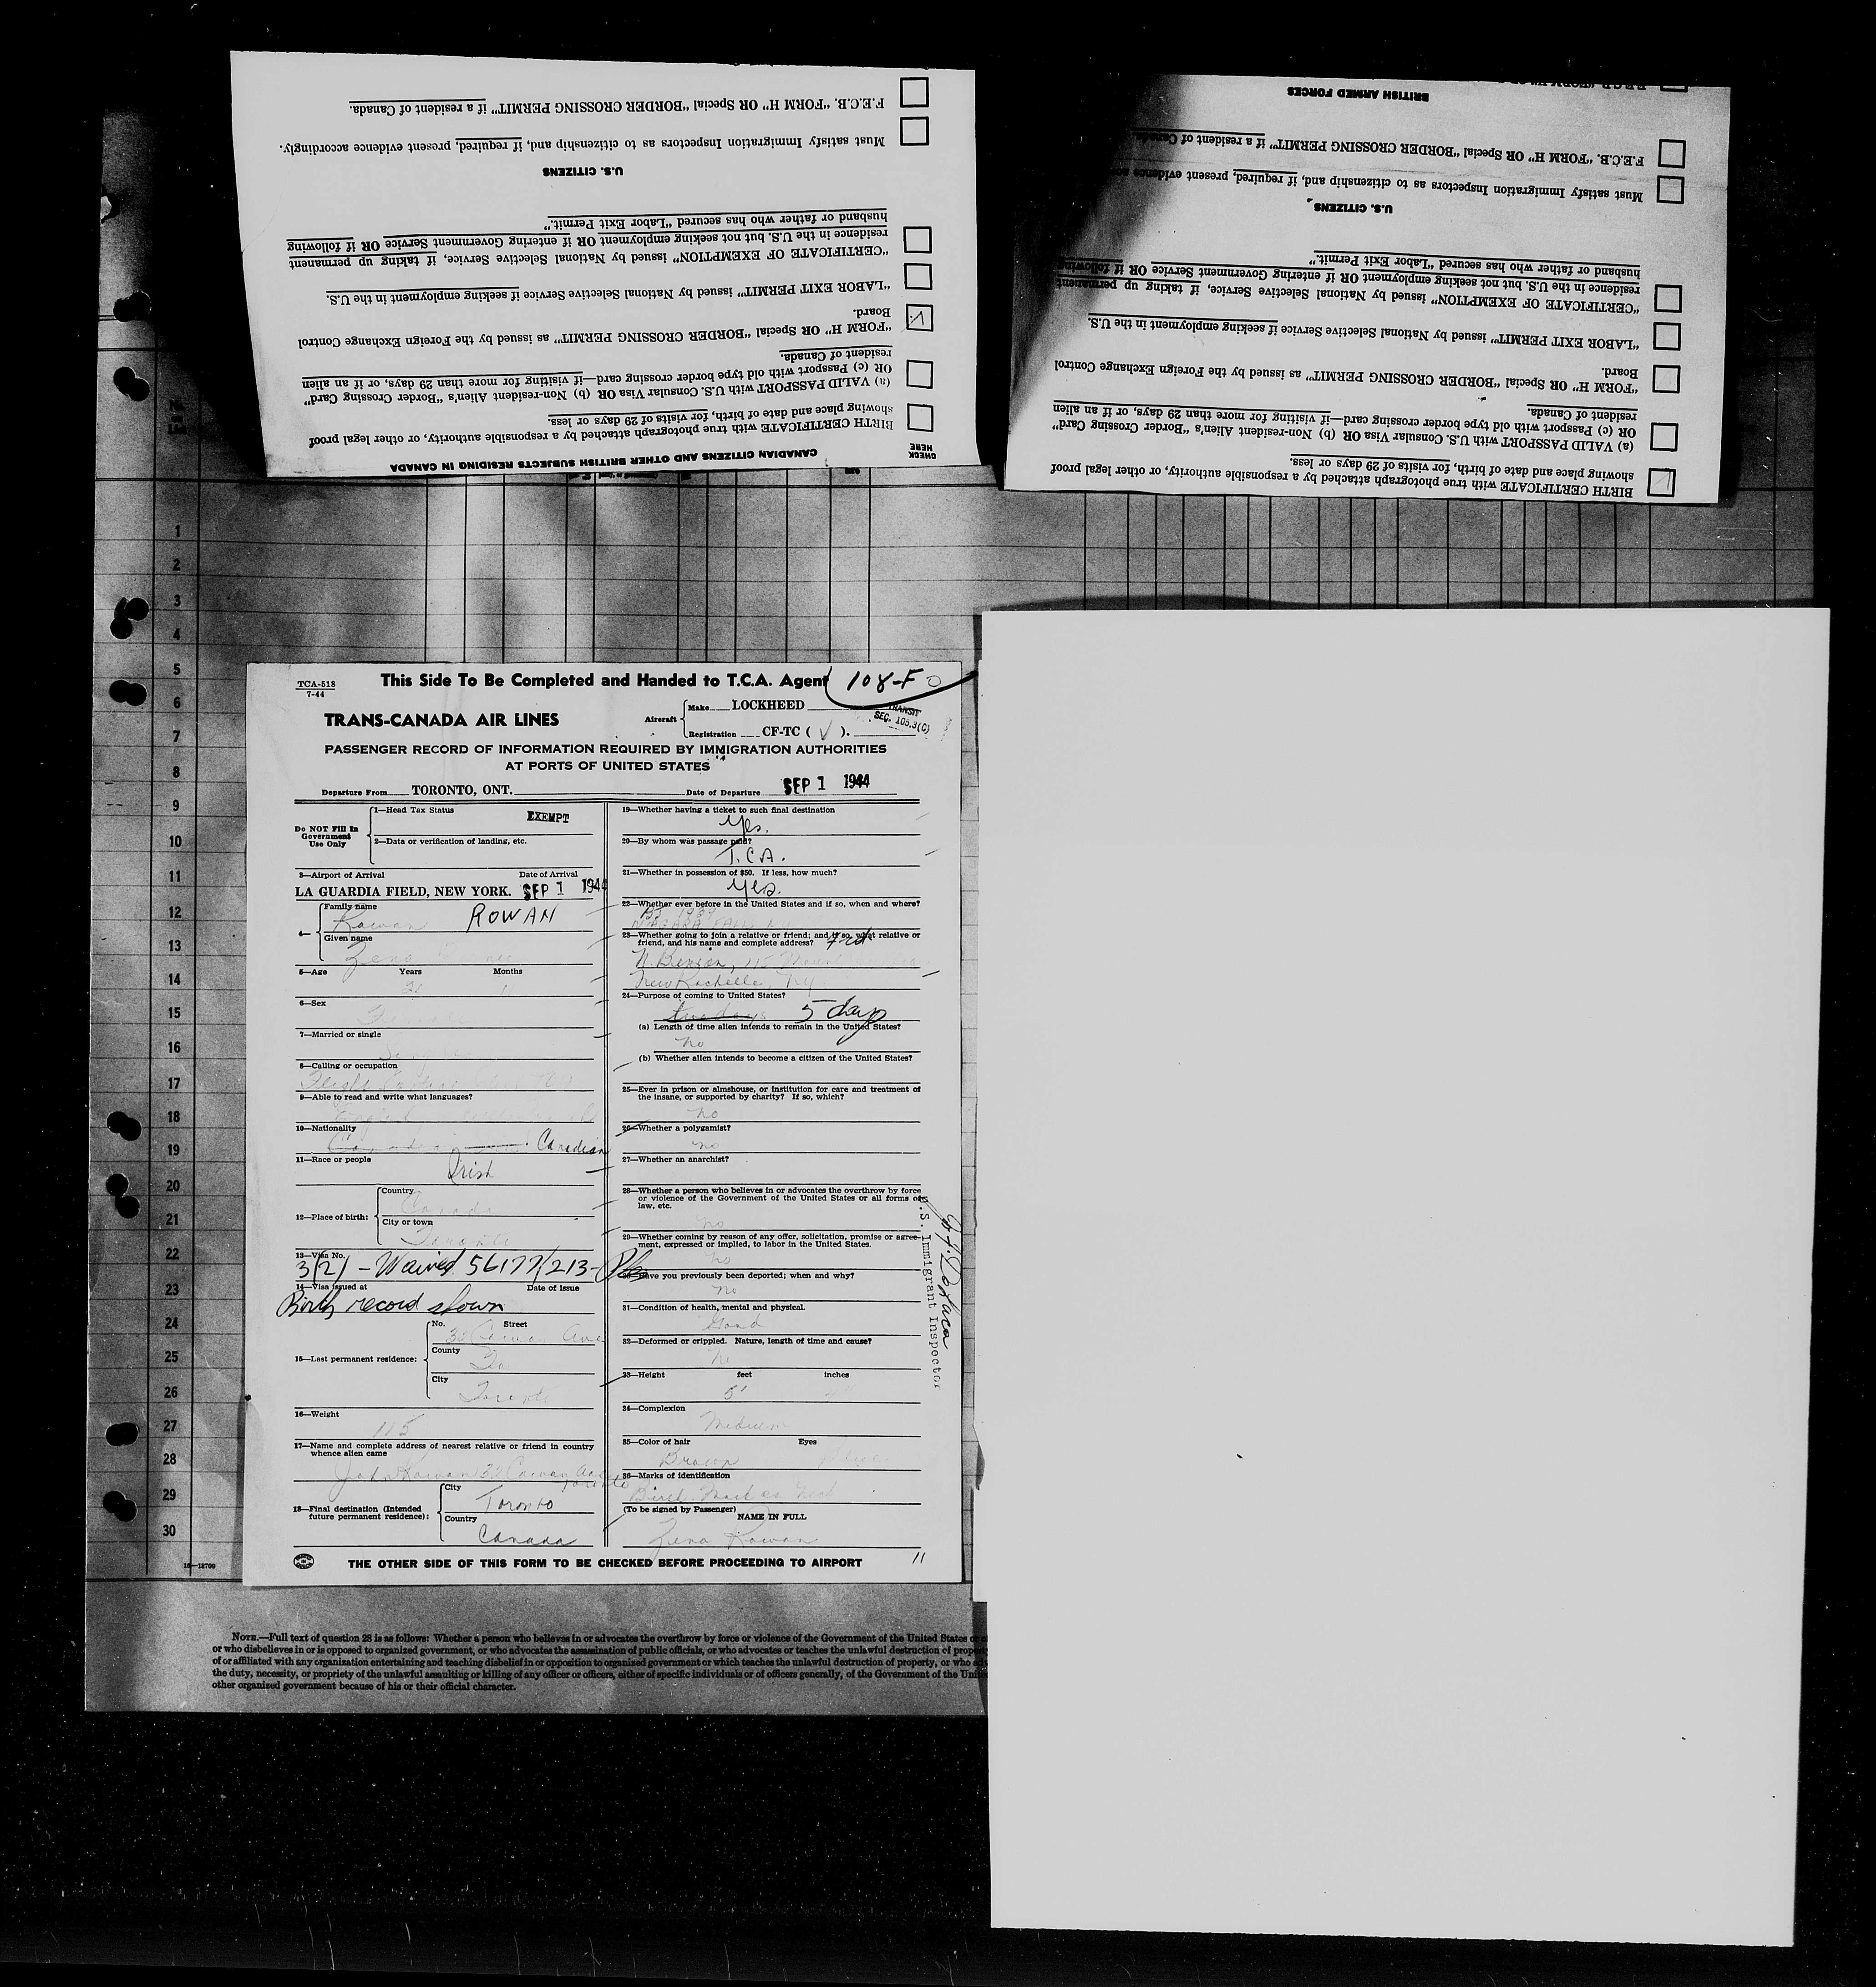 CHECK HERE
CANADIAN CITIZENS AND OTHER BRITISH SUBJECTS RESIDING IN CANADA
BIRTH CERTIFICATE with true photograph attached by a responsible authority, or other legal proof
showing place and date of birth, for visits of 29 days or less.
(a) VALID PASSPORT with U.S. Consular Visa OR (b) Non-resident Alien's "Border Crossing Card"
OR (c) Passport with old type border crossing card—if visiting for more than 29 days, or if an alien
resident of Canada.
"FORM H" OR Special "BORDER CROSSING PERMIT" as issued by the Foreign Exchange Control
Board.
"LABOR EXIT PERMIT" issued by National Selective Service if seeking employment in the U.S.
"CERTIFICATE OF EXEMPTION" issued by National Selective Service, if taking up permanent
residence in the U.S. but not seeking employment OR if entering Government Service OR if following
husband or father who has secured "Labor Exit Permit."
U.S. CITIZENS
Must satisfy Immigration Inspectors as to citizenship and, if required, present evidence accordingly.
F.E.C.B. "FORM H" OR Special "BORDER CROSSING PERMIT" if a resident of Canada.
BIRTH CERTIFICATE with true photograph attached by a responsible authority, or other legal proof
showing place and date of birth, for visits of 29 days or less.
(a) VALID PASSPORT with U.S. Consular Visa OR (b) Non-resident Alien's "Border Crossing Card"
OR (c) Passport with old type border crossing card—if visiting for more than 29 days, or if an alien
resident of Canada.
"FORM H" OR Special "BORDER CROSSING PERMIT" as issued by the Foreign Exchange Control
Board.
"LABOR EXIT PERMIT" issued by National Selective Service if seeking employment in the U.S.
"CERTIFICATE OF EXEMPTION" issued by National Selective Service, if taking up permanent
residence in the U.S. but not seeking employment OR if entering Government Service OR if following
husband or father who has secured "Labor Exit Permit."
U.S. CITIZENS
Must satisfy Immigration Inspectors as to citizenship and, if required, present evidence
F.E.C.B. "FORM H" OR Special "BORDER CROSSING PERMIT" if a resident of Canada.
BRITISH ARMED FORCES
1
2
3
4
5
6
7
8
9
10
11
12
13
14
15
16
17
18
19
20
21
22
23
24
25
26
27
28
29
30
16—12709
TCA-518
7-44
This Side To Be Completed and Handed to T.C.A. Agent
108-F
TRANS-CANADA AIR LINES
Aircraft
Make LOCKHEED
Registration CF-TC ( √ ).
TRANSIT
SEC. 105.3(C)
PASSENGER RECORD OF INFORMATION REQUIRED BY IMMIGRATION AUTHORITIES
AT PORTS OF UNITED STATES
Departure From TORONTO, ONT. Date of Departure SEP 1 1944
Do NOT Fill In
Government
Use Only
1—Head Tax Status
EXEMPT
2—Data or verification of landing, etc.
3—Airport of Arrival Date of Arrival
LA GUARDIA FIELD, NEW YORK. SEP 1 1944
4—
Family name
Rowan ROWAN
Given name
Zena
5—Age Years Months
21
6—Sex
Female
7—Married or single
8—Calling or occupation
Flight
9—Able to read and write what languages?
English
10—Nationality
Canadian
11—Race or people
Irish
12—Place of birth:
Country
Canada
City or town
Toronto
13—Visa No.
3(2) - Waived 56177/213-
14—Visa issued at Date of issue
Birth record shown
15—Last permanent residence:
No. Street
32 Cowan Ave
County
City
Toronto
16—Weight
115
17—Name and complete address of nearest relative or friend in country
whence alien came
John Rowan 32 Cowan Ave
Toronto
18—Final destination (Intended
future permanent residence):
City
Toronto
Country
Canada
19—Whether having a ticket to such final destination
Yes.
20—By whom was passage paid?
T.C.A.
21—Whether in possession of $50. If less, how much?
Yes.
22—Whether ever before in the United States and if so, when and where?
1939
NIAGARA FALLS
23—Whether going to join a relative or friend; and if so, what relative or
friend, and his name and complete address?
N. Benson, 115
New Rochelle, NY
24—Purpose of coming to United States?
5 days
(a) Length of time alien intends to remain in the United States?
no
(b) Whether alien intends to become a citizen of the United States?
25—Ever in prison or almshouse, or institution for care and treatment of
the insane, or supported by charity? If so, which?
no
26—Whether a polygamist?
no
27—Whether an anarchist?
28—Whether a person who believes in or advocates the overthrow by force
or violence of the Government of the United States or all forms of
law, etc.
no
29—Whether coming by reason of any offer, solicitation, promise or agree-
ment, expressed or implied, to labor in the United States.
no
30—Have you previously been deported; when and why?
no
31—Condition of health, mental and physical.
Good
32—Deformed or crippled. Nature, length of time and cause?
no
33—Height feet inches
5'
34—Complexion
Medium
35—Color of hair Eyes
Brown
36—Marks of identification
Birth Mark on neck
(To be signed by Passenger)
NAME IN FULL
Zena Rowan
U.S. Immigrant Inspector
THE OTHER SIDE OF THIS FORM TO BE CHECKED BEFORE PROCEEDING TO AIRPORT
11
NOTE.—Full text of question 28 is as follows: Whether a person who believes in or advocates the overthrow by force or violence of the Government of the United States
or who disbelieves in or is opposed to organized government, or who advocates the assassination of public officials, or who advocates or teaches the unlawful destruction of
of or affiliated with any organization entertaining and teaching disbelief in or opposition to organized government or which teaches the unlawful destruction of property, or who
the duty, necessity, or propriety of the unlawful assaulting or killing of any officer or officers, either of specific individuals or of officers generally, of the Government of the
other organized government because of his or their official character.